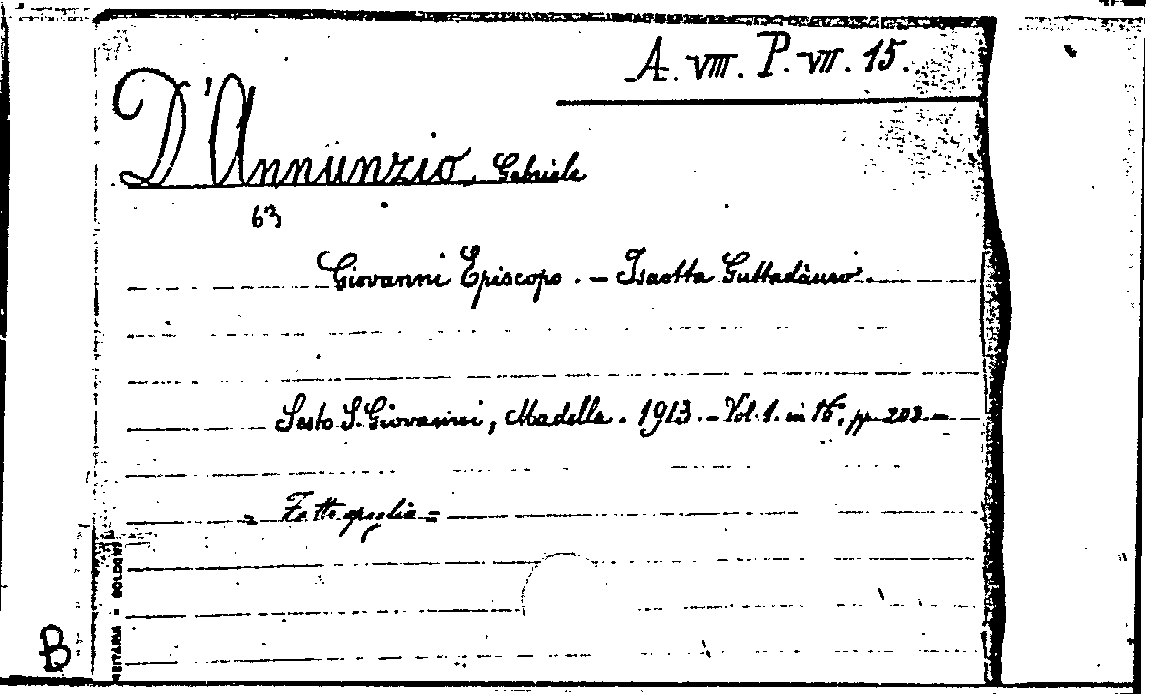 A. VIII. P. VII. 15.
D'Annunzio, Gabriele
63
Giovanni Episcopo. - Isaotta Guttadàuro.
Sesto S. Giovanni, Madella. 1913. - Vol. 1. in 16°. pp. 203. -
B